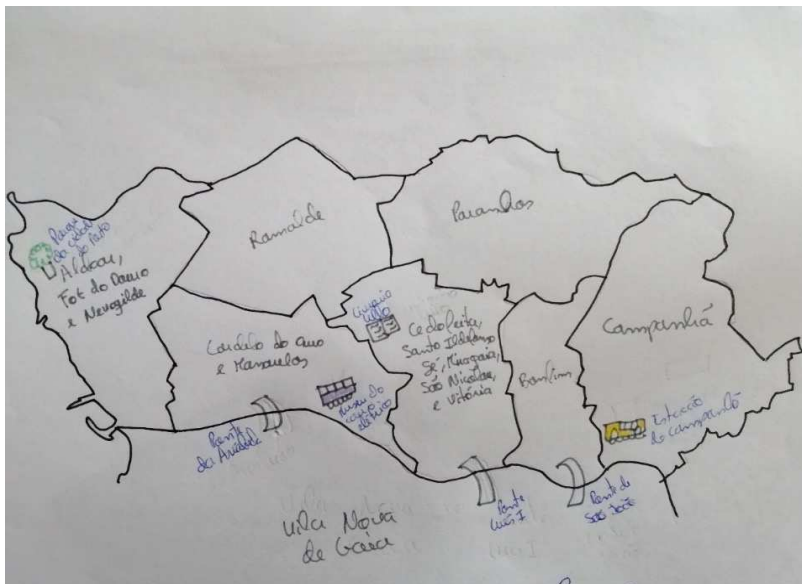 Parque
da cidade
do Porto
Aldoar,
Foz do Douro
e Nevogilde
Ramalde
Paranhos
Lordelo do Ouro
e Massarelos
Livraria
Lello
Cedofeita,
Santo Ildefonso
Sé, Miragaia,
São Nicolau,
e Vitória
Bonfim
Campanhã
Museu do
carro
elétrico
Ponte
da Arrábida
Ponte
Luís I
Ponte de
São João
Estação
de Campanhã
Vila Nova
de Gaia